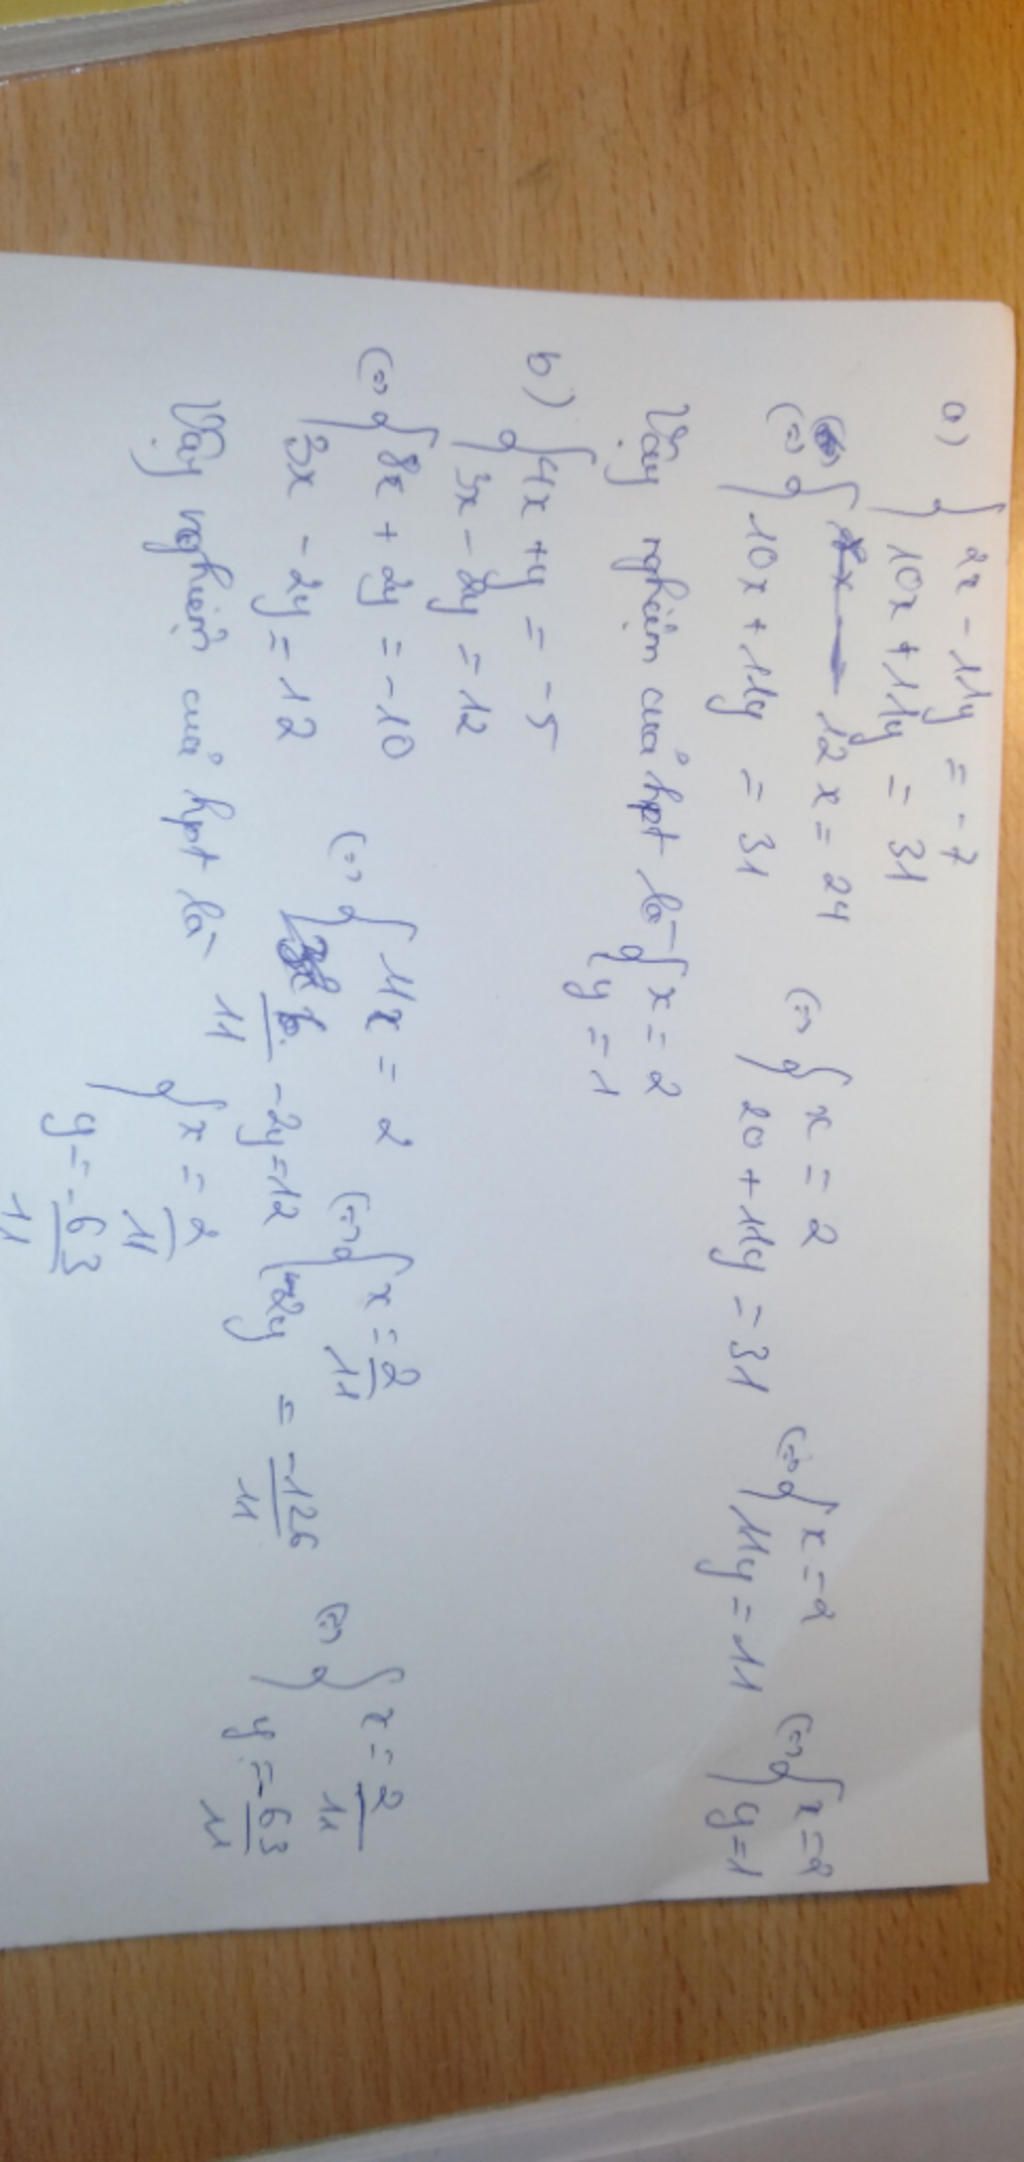 a) { 2x - 11y = -7
10x + 11y = 31
(=) { 12x = 24 (=) { x = 2 (=) { x = 2 (=) { x = 2
10x + 11y = 31 20 + 11y = 31 11y = 11 y = 1
Vậy nghiệm của hpt là { x = 2
y = 1
b) { 4x + y = -5
3x - 2y = 12
(=) { 8x + 2y = -10 (=) { 11x = 2 (=) { x = 2/11 (=) { x = 2/11
3x - 2y = 12 6/11 - 2y = 12 -2y = -126/11 y = -63/11
Vậy nghiệm của hpt là { x = 2/11
y = -63/11